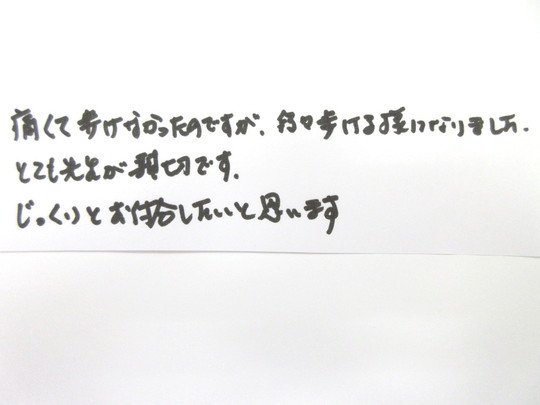 痛くて歩けなかったのですが、段々歩ける様になりました。
とても先生が親切です。
じっくりとお付合したいと思います